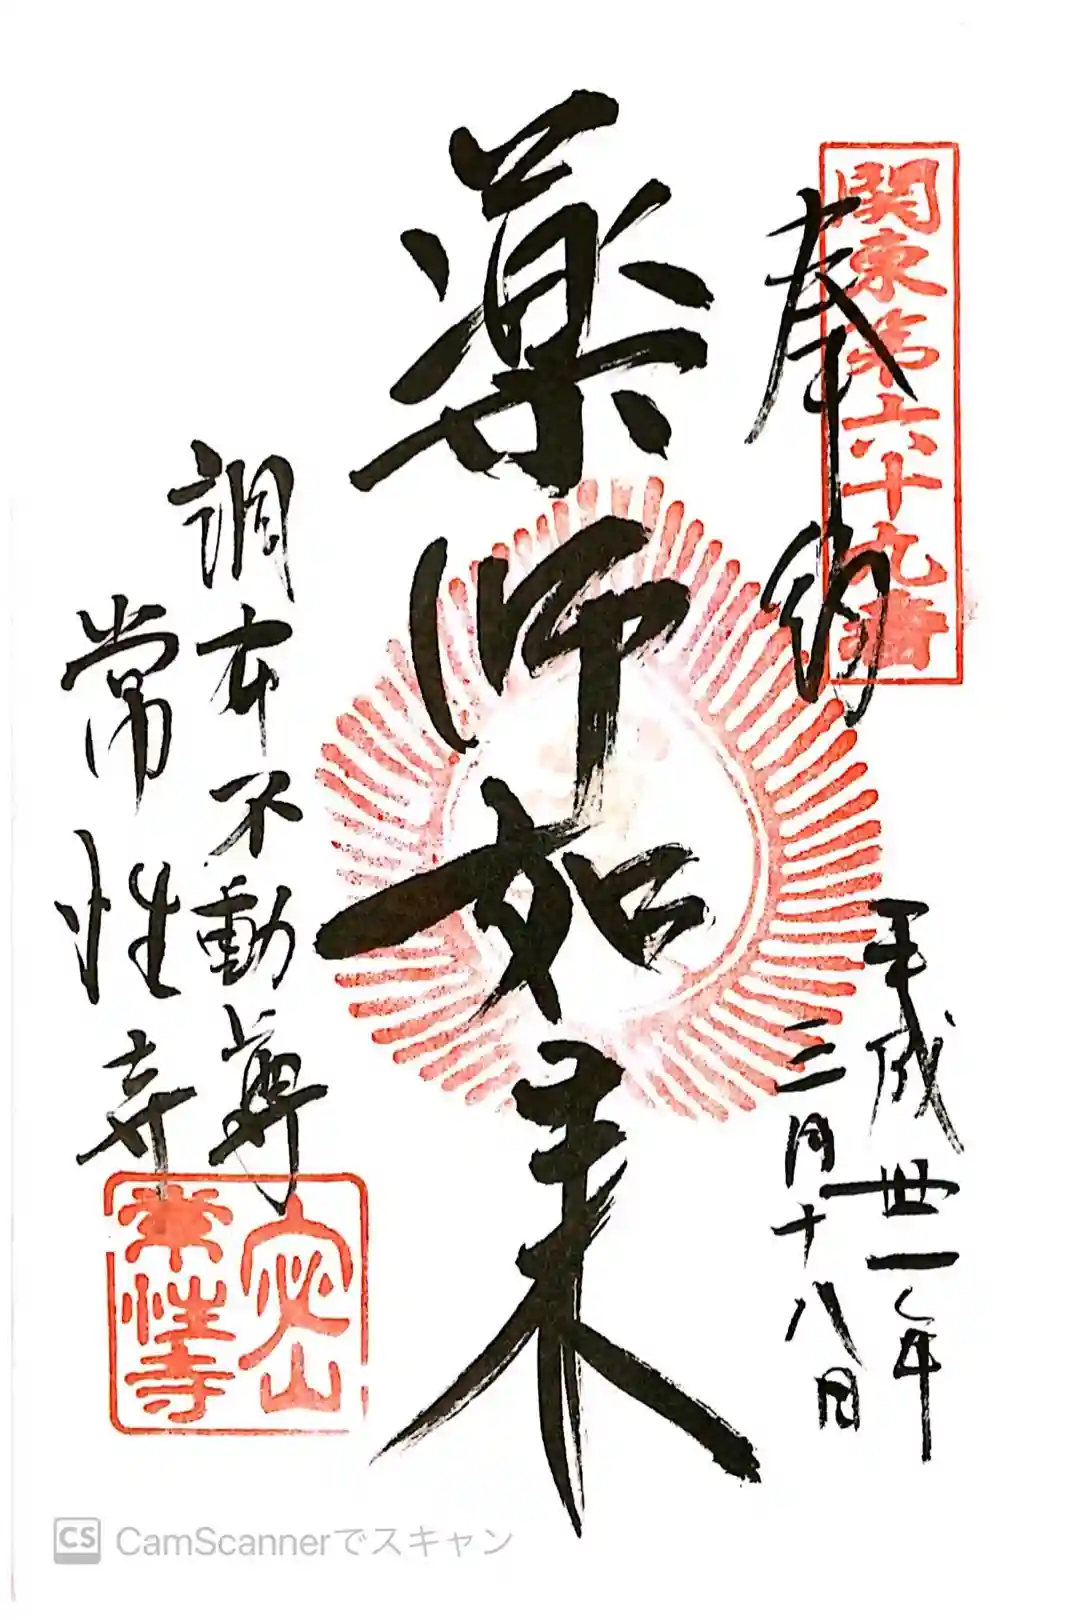 関東第六十九番
奉納
平成卅一年
三月十八日
薬師如来
調布不動尊
常性寺
密山
常性寺
CS CamScannerでスキャン